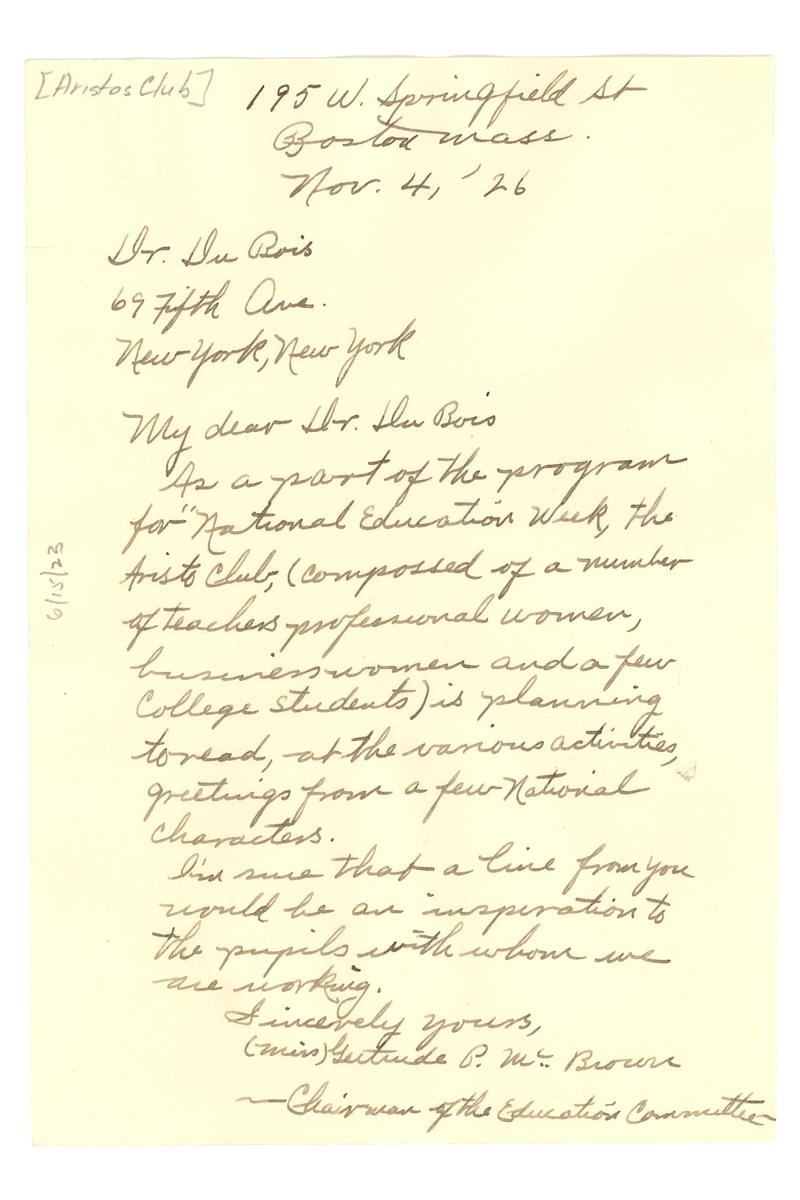 [Aristos Club]
195 W. Springfield St
Boston Mass.
Nov. 4, '26
Dr. Du Bois
69 Fifth Ave.
New York, New York
My dear Dr. Du Bois
As a part of the program
for "National Education Week, the
Aristo Club, (compossed of a number
of teachers professional women,
business women and a few
College students) is planning
to read, at the various activities,
greetings from a few National
characters.
I'm sure that a line from you
would be an inspiration to
the pupils with whom we
are working.
Sincerely yours,
(Miss) Gertrude P. Mc Brown
—Chairman of the Education Committee
6/15/23